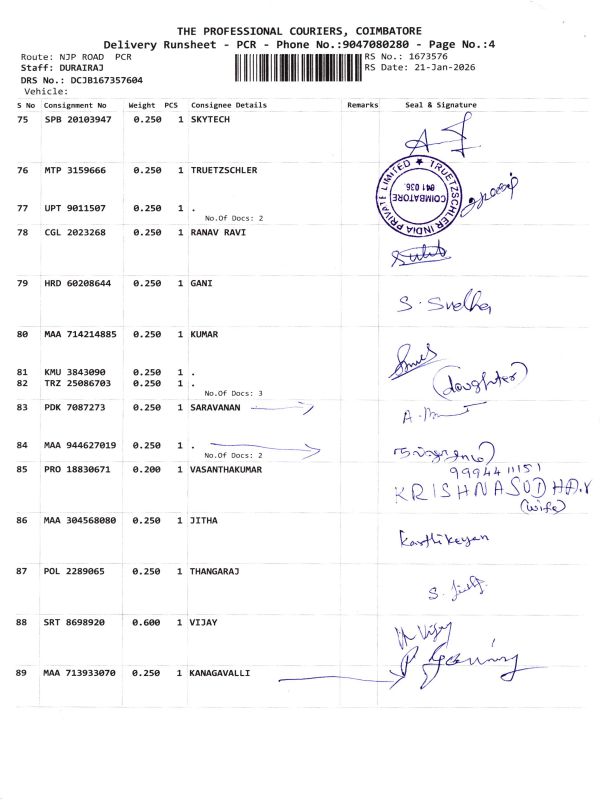 THE PROFESSIONAL COURIERS, COIMBATORE
Delivery Runsheet - PCR - Phone No.:9047080280 - Page No.:4
Route: NJP ROAD PCR
RS No.: 1673576
Staff: DURAIRAJ
RS Date: 21-Jan-2026
DRS No.: DCJB167357604
Vehicle:
S No Consignment No Weight PCS Consignee Details Remarks Seal & Signature
75 SPB 20103947 0.250 1 SKYTECH
76 MTP 3159666 0.250 1 TRUETZSCHLER
TRUETZSCHLER INDIA PRIVATE LIMITED ★
COIMBATORE
641 036.
77 UPT 9011507 0.250 1 .
No.Of Docs: 2
78 CGL 2023268 0.250 1 RANAV RAVI
79 HRD 60208644 0.250 1 GANI
S. Snelha
80 MAA 714214885 0.250 1 KUMAR
81 KMU 3843090 0.250 1 .
(daughter)
82 TRZ 25086703 0.250 1 .
No.Of Docs: 3
83 PDK 7087273 0.250 1 SARAVANAN
84 MAA 944627019 0.250 1 .
No.Of Docs: 2
85 PRO 18830671 0.200 1 VASANTHAKUMAR
9994411151
KRISHNASUDHA.V
(wife)
86 MAA 304568080 0.250 1 JITHA
Karthikeyan
87 POL 2289065 0.250 1 THANGARAJ
88 SRT 8698920 0.600 1 VIJAY
Vijay
89 MAA 713933070 0.250 1 KANAGAVALLI